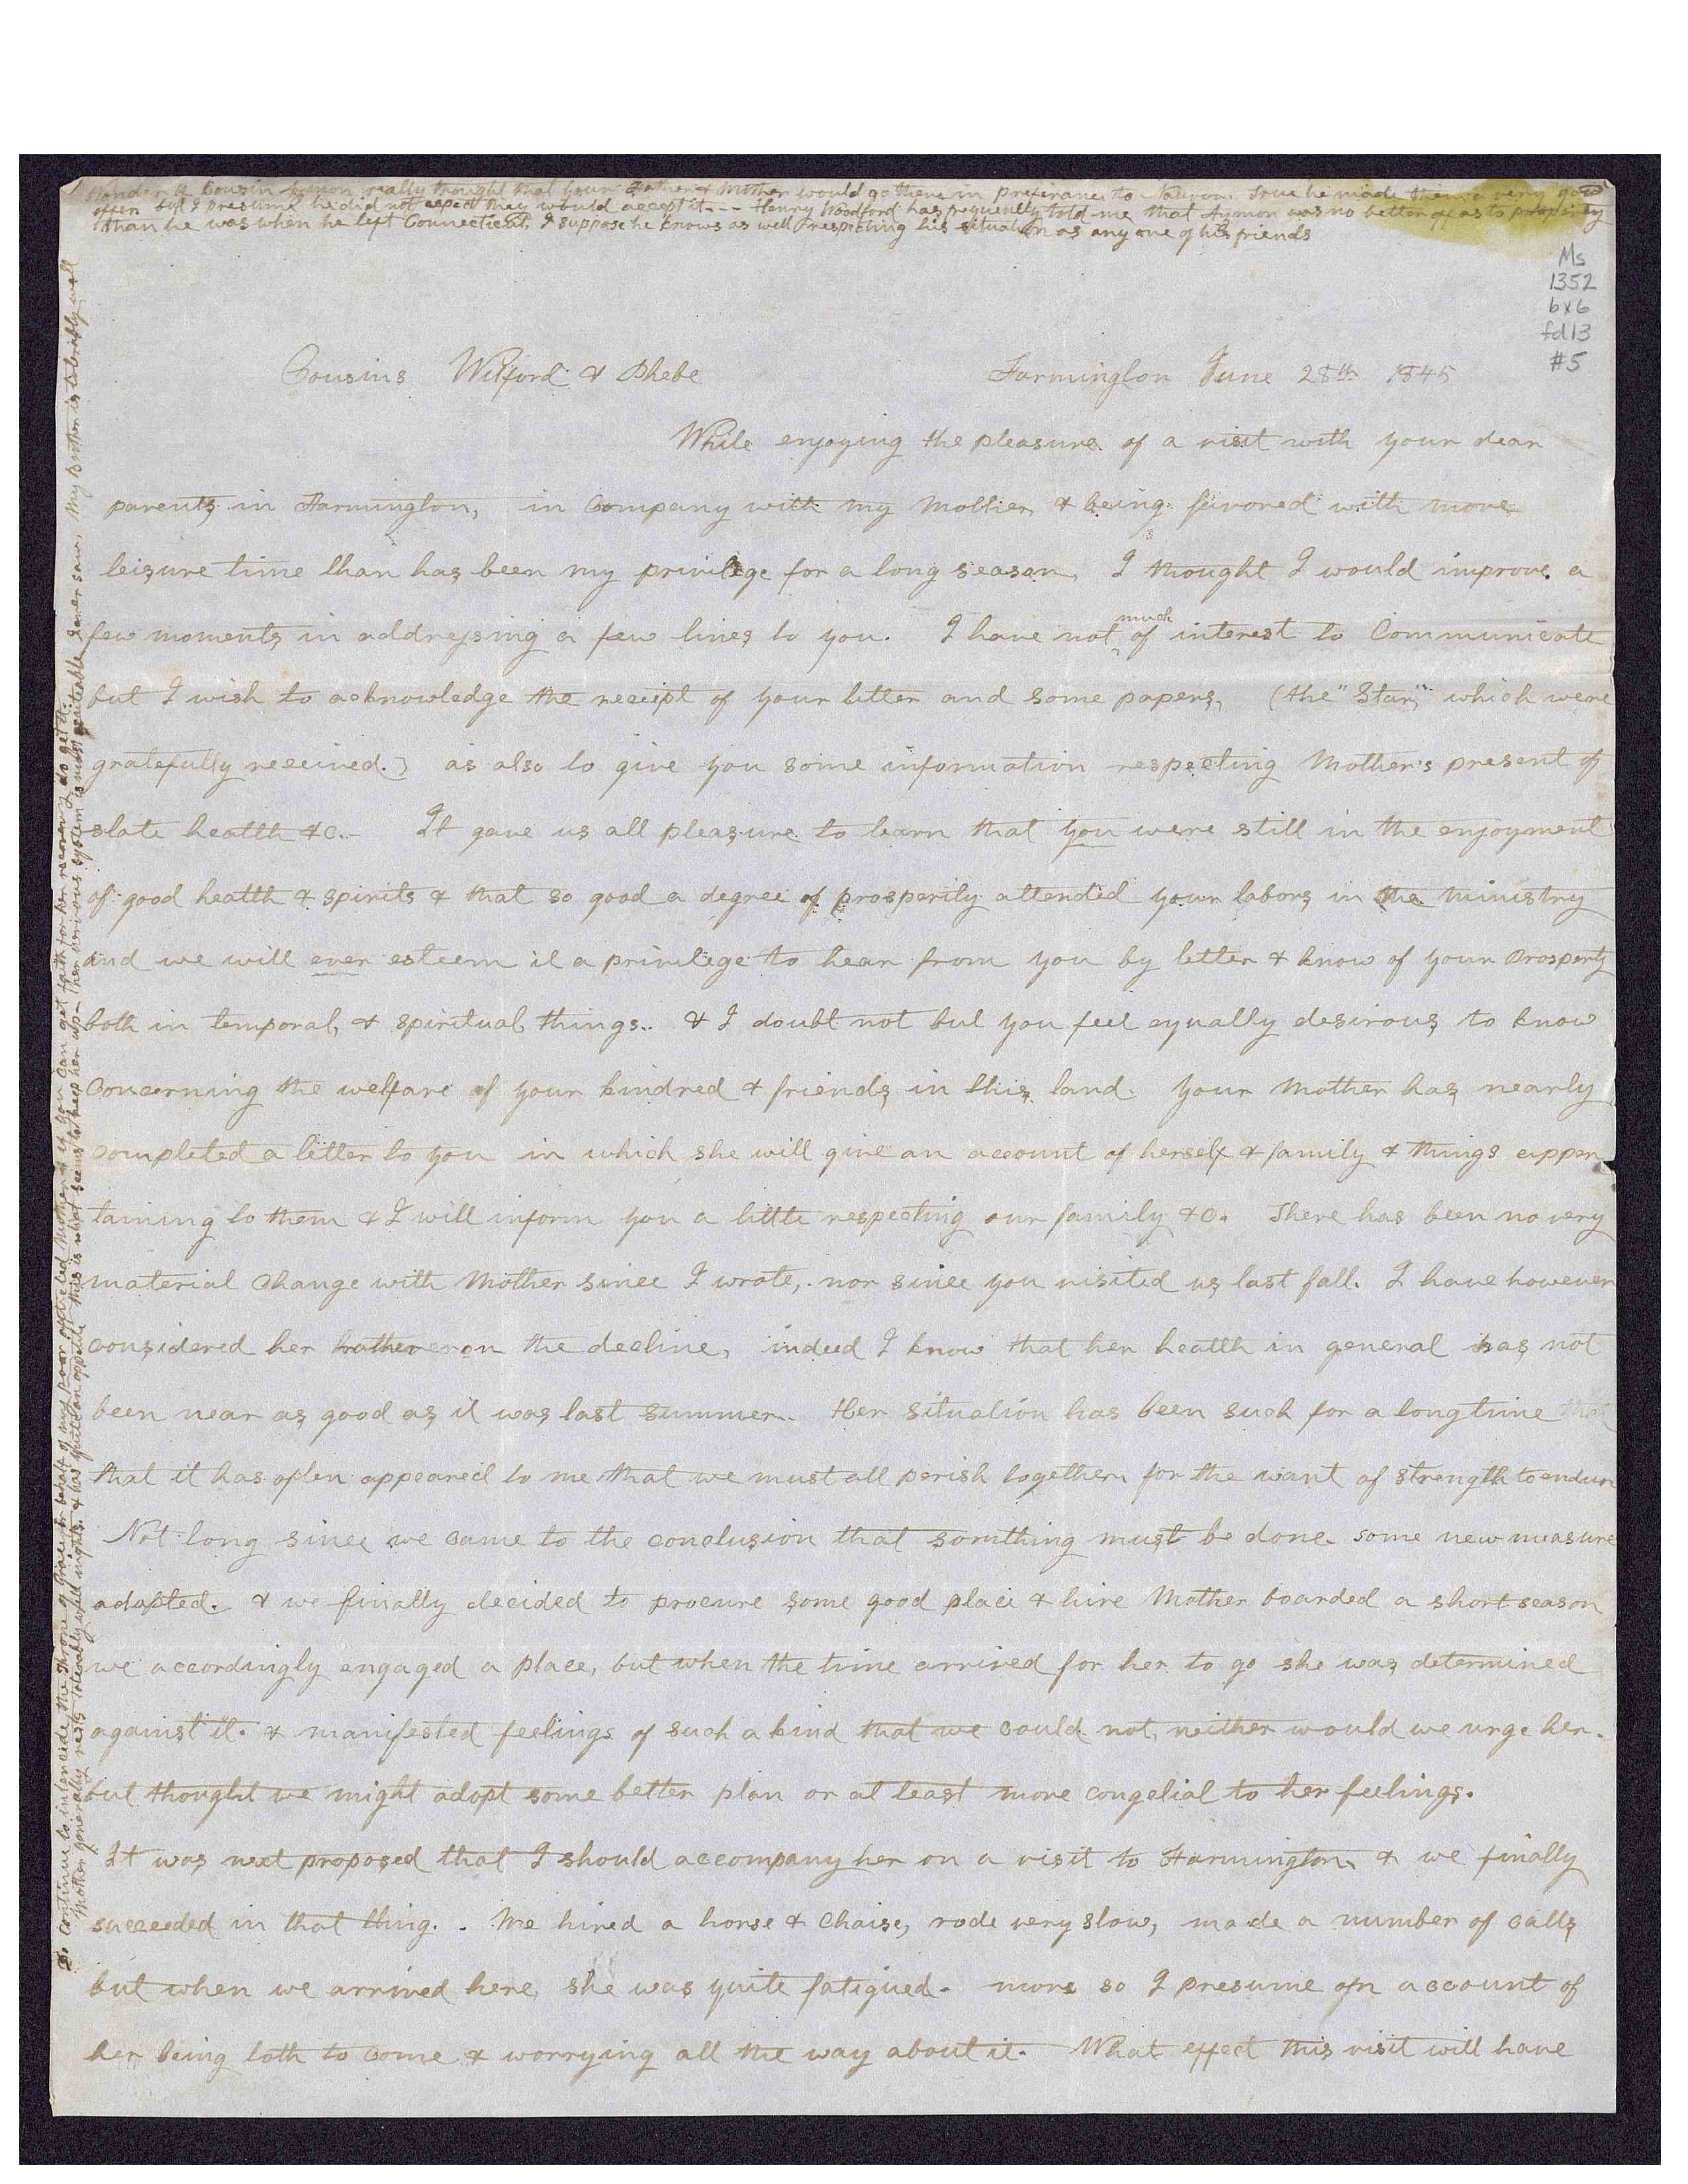 Wonder if Cousin Aymon really thought that your Father & Mother would go there in preferance to Nauvoo. True he made them a very good
offer but I presume he did not expect they would accept it. -- Henry Woodford has frequently told me that Aymon was no better off as to property
than he was when he left Connecticut, I suppose he knows as well respecting his situation as any one of his friends
Ms
1352
bx6
fd13
#5
Cousins Wilford & Phebe Farmington June 28th 1845
While enjoying the pleasure of a visit with your dear
parents in Farmington, in Company with my Mother & being favored with more
leisure time than has been my privilege for a long season, I thought I would improve a
few moments in addressing a few lines to you. I have not much of interest to Communicate
but I wish to acknowledge the receipt of your letter and some papers, (the "Star," which were
gratefully received.) as also to give you some information respecting Mother's present of
state health &c.- It gave us all pleasure to learn that you were still in the enjoyment
of good health & spirits & that so good a degree of prosperity attended your labors in the ministry
and we will ever esteem it a privilege to hear from you by letter & know of your Prosperty
both in temporal, & spiritual things.. & I doubt not but you feel equally desirous to know
Concerning the welfare of your kindred & friends in this land. Your Mother has nearly
completed a letter to you in which she will give an account of herself & family & things apper
taining to them & I will inform you a little respecting our family &c. There has been no very
material Change with Mother since I wrote, nor since you visited us last fall. I have however
considered her rather on the decline, indeed I know that her health in general has not
been near as good as it was last summer. Her situation has been such for a long time that
that it has often appeared to me that we must all perish together for the want of strength to endure
Not long since we came to the conclusion that somthing must be done some new measure
adopted. & we finally decided to procure some good place & hire Mother boarded a short season
we accordingly engaged a place, but when the time arrived for her to go she was determined
against it. & manifested feelings of such a kind that we could not, neither would we urge her.
but thought we might adopt some better plan or at least more congelial to her feelings.
It was next proposed that I should accompany her on a visit to Farmington & we finally
succeeded in that thing. . We hired a horse & Chaise, rode very slow, made a number of calls
but when we arrived here she was quite fatigued. more so I presume on account of
her being loth to come & worrying all the way about it. What effect this visit will have
Do continue to intercede the Throne of Grace in behalf of my poor afflicted Mother & if you can get faith for her recovery do get it.
Mother generally rests tolerably well nights. & has quite an appetite this is what seems to keep her up- Her nervous system is most iritable I ever saw, My Brother is tolerably well